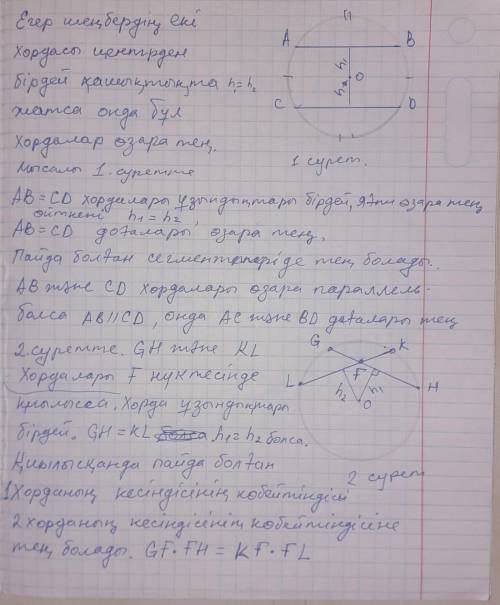 Егер шеңбердің екі
A B
хордасы центрден
h₁
бірдей қашықтықта h₁=h₂
O
h₂
жатса онда бұл
C D
хордалар өзара тең.
1 сурет.
Мысалы 1. суретте
AB=CD хордалары ұзындықтары бірдей, яғни өзара тең
өйткені h₁=h₂,
AB=CD доғалары өзара тең.
Пайда болған сегменттері де тең болады.
AB және CD хордалары өзара параллель
болса AB//CD, онда AC және BD доғалары тең
2 суретте. GH және KL
G K
Хордалары F нүктесінде
F P
L h₂ h₁ H
қиылысса, хорда ұзындықтары
O
бірдей. GH=KL болса h₁=h₂ болса.
Қиылысқанда пайда болған
2 сурет
1 Хорданың кесіндісінің көбейтіндісі
2 хорданың кесіндісінің көбейтіндісіне
тең болады. GF·FH=KF·FL